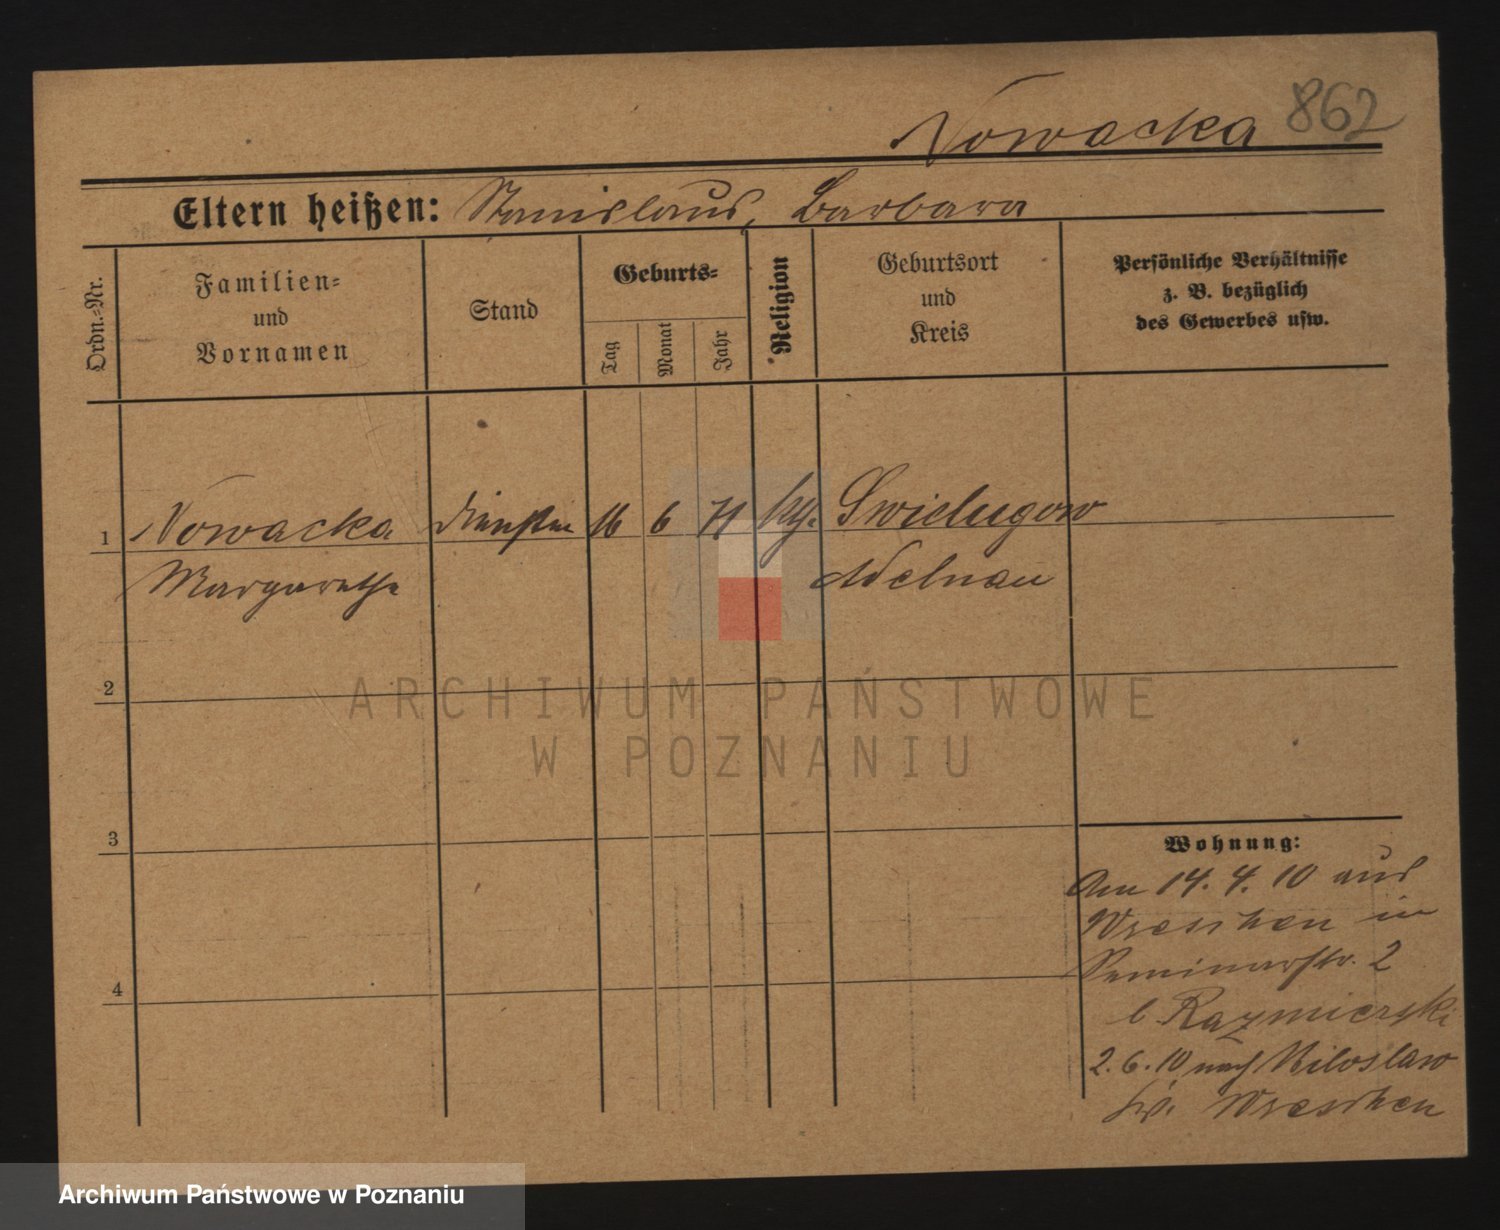 Nowacka 862
Eltern heißen: Stanislaus, Barbara
Ordn.-Nr.
Familien-
und
Vornamen
Stand
Geburts-
Tag
Monat
Jahr
Religion
Geburtsort
und
Kreis
Persönliche Verhältnisse
z. B. bezüglich
des Gewerbes usw.
1 Nowacka 16 6 71 Swielugow
Margarethe Adelnau
2
ARCHIWUM PAŃSTWOWE
W POZNANIU
3
Wohnung:
Am 14. 4. 10 aus
Wreschen in
Seminarstr. 2
b Kazmierski
4
2. 6. 10 nach Miloslaw
Wreschen
Archiwum Państwowe w Poznaniu